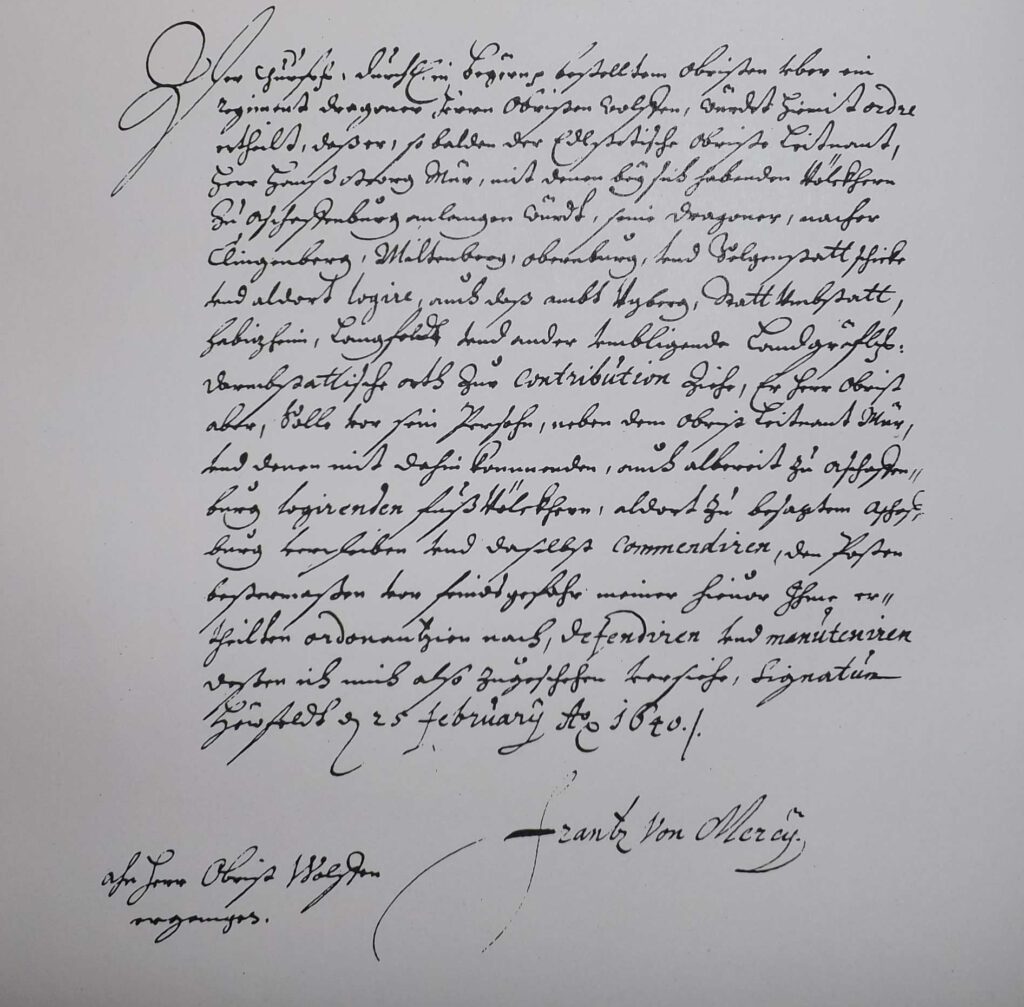 Der Churfrst. Durchl. in Bayrn bestelltem Obristen vber ein
regiment dragoner, Herrn Obristen Wolffen, würdet hiemit ordre
ertheilt, daß er, so balden der Edlstetische Obriste Leitnant,
Herr Hannß Georg Mür, mit denen bey sich habenden Völckhern
zu Aschaffenburg anlangen würdt, seine dragoner, nacher
Clingenberg, Miltenberg, obernburg, vnd Selgenstatt schicke
vnd aldort logire, auch daß ambt Vzberg, Statt Vmbstatt,
Habizheim, Langfeldt vnd ander vmbligende Landgräflich:
Darmbstattische orth zur contribution ziehe, Er Herr Obrist
aber, Solle vor sein Persohn, neben dem Obrist Leitnant Mür,
vnd denen mit dahin kommenden, auch albereit zu Aschaffen-
burg logirenden fuß Völckhern, aldort zu besagtem Aschaf-
burg verbleiben vnd daselbst commendiren, den Posten
bestermaßen vor feindsgefahr meiner hieuor Ihme er-
theilten ordonantzien nach, defendiren vnd manuteniren
deßen ich mich also zugeschehen versiehe, Signatum
den 25 february Ao 1640./.
Frantz Von Mercy.
ahn Herr Obrist Wolffen
ergangen.